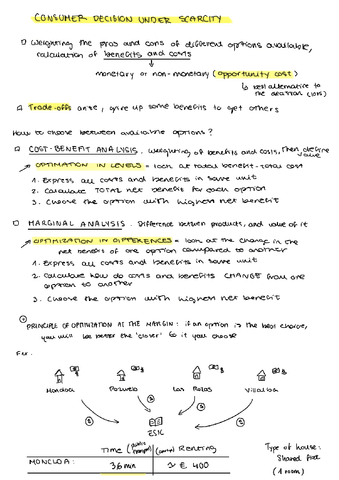 CONSUMER DECISION UNDER SCARCITY
Weighting the pros and cons of different options available,
calculation of benefits and costs
monetary or non-monetary (opportunity cost)
best alternative to
the decision
Trade-offs arise, give up some benefits to get others
How to choose between available options?
COST-BENEFIT ANALYSIS. Weighting of benefits and costs, then define
value
OPTIMATION IN LEVELS = look at total benefit-total cost
1. Express all costs and benefits in same unit
2. Calculate TOTAL net benefit for each option
3. Choose the option with highest net benefit
MARGINAL ANALYSIS. Difference between products, and value of it
OPTIMIZATION IN DIFFERENCES = look at the change in the
net benefits of one option compared to another
1. Express all costs and benefits in same unit
2. Calculate how do costs and benefits CHANGE from one
option to another
3. Choose the option with highest net benefit
PRINCIPLE OF OPTIMIZATION AT THE MARGIN: if an option is the best choice,
you will be better the 'closer' to it you choose
Moncloa Pozuelo Las Rozas Villalba
ESIC
Time (public transport) Renting
MONCLOA: 36 min € 400
Type of house:
Shared flat
(1 room)